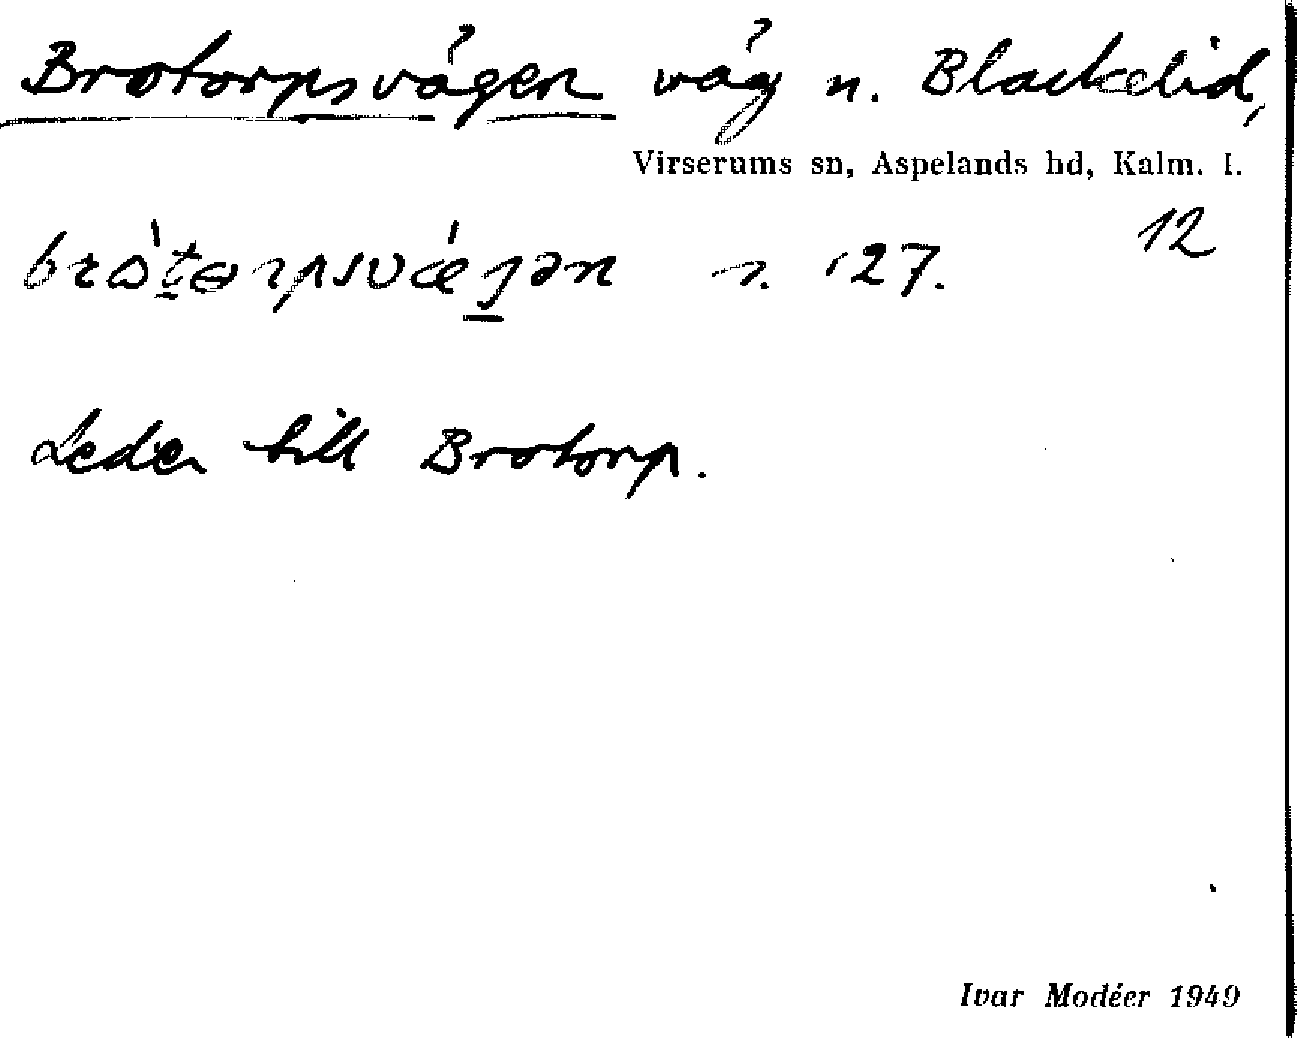 Brotorpsvägen väg n. Blackelid,
Virserums sn, Aspelands hd, Kalm. l.
12
27.
Leder till Brotorp.
Ivar Modéer 1949